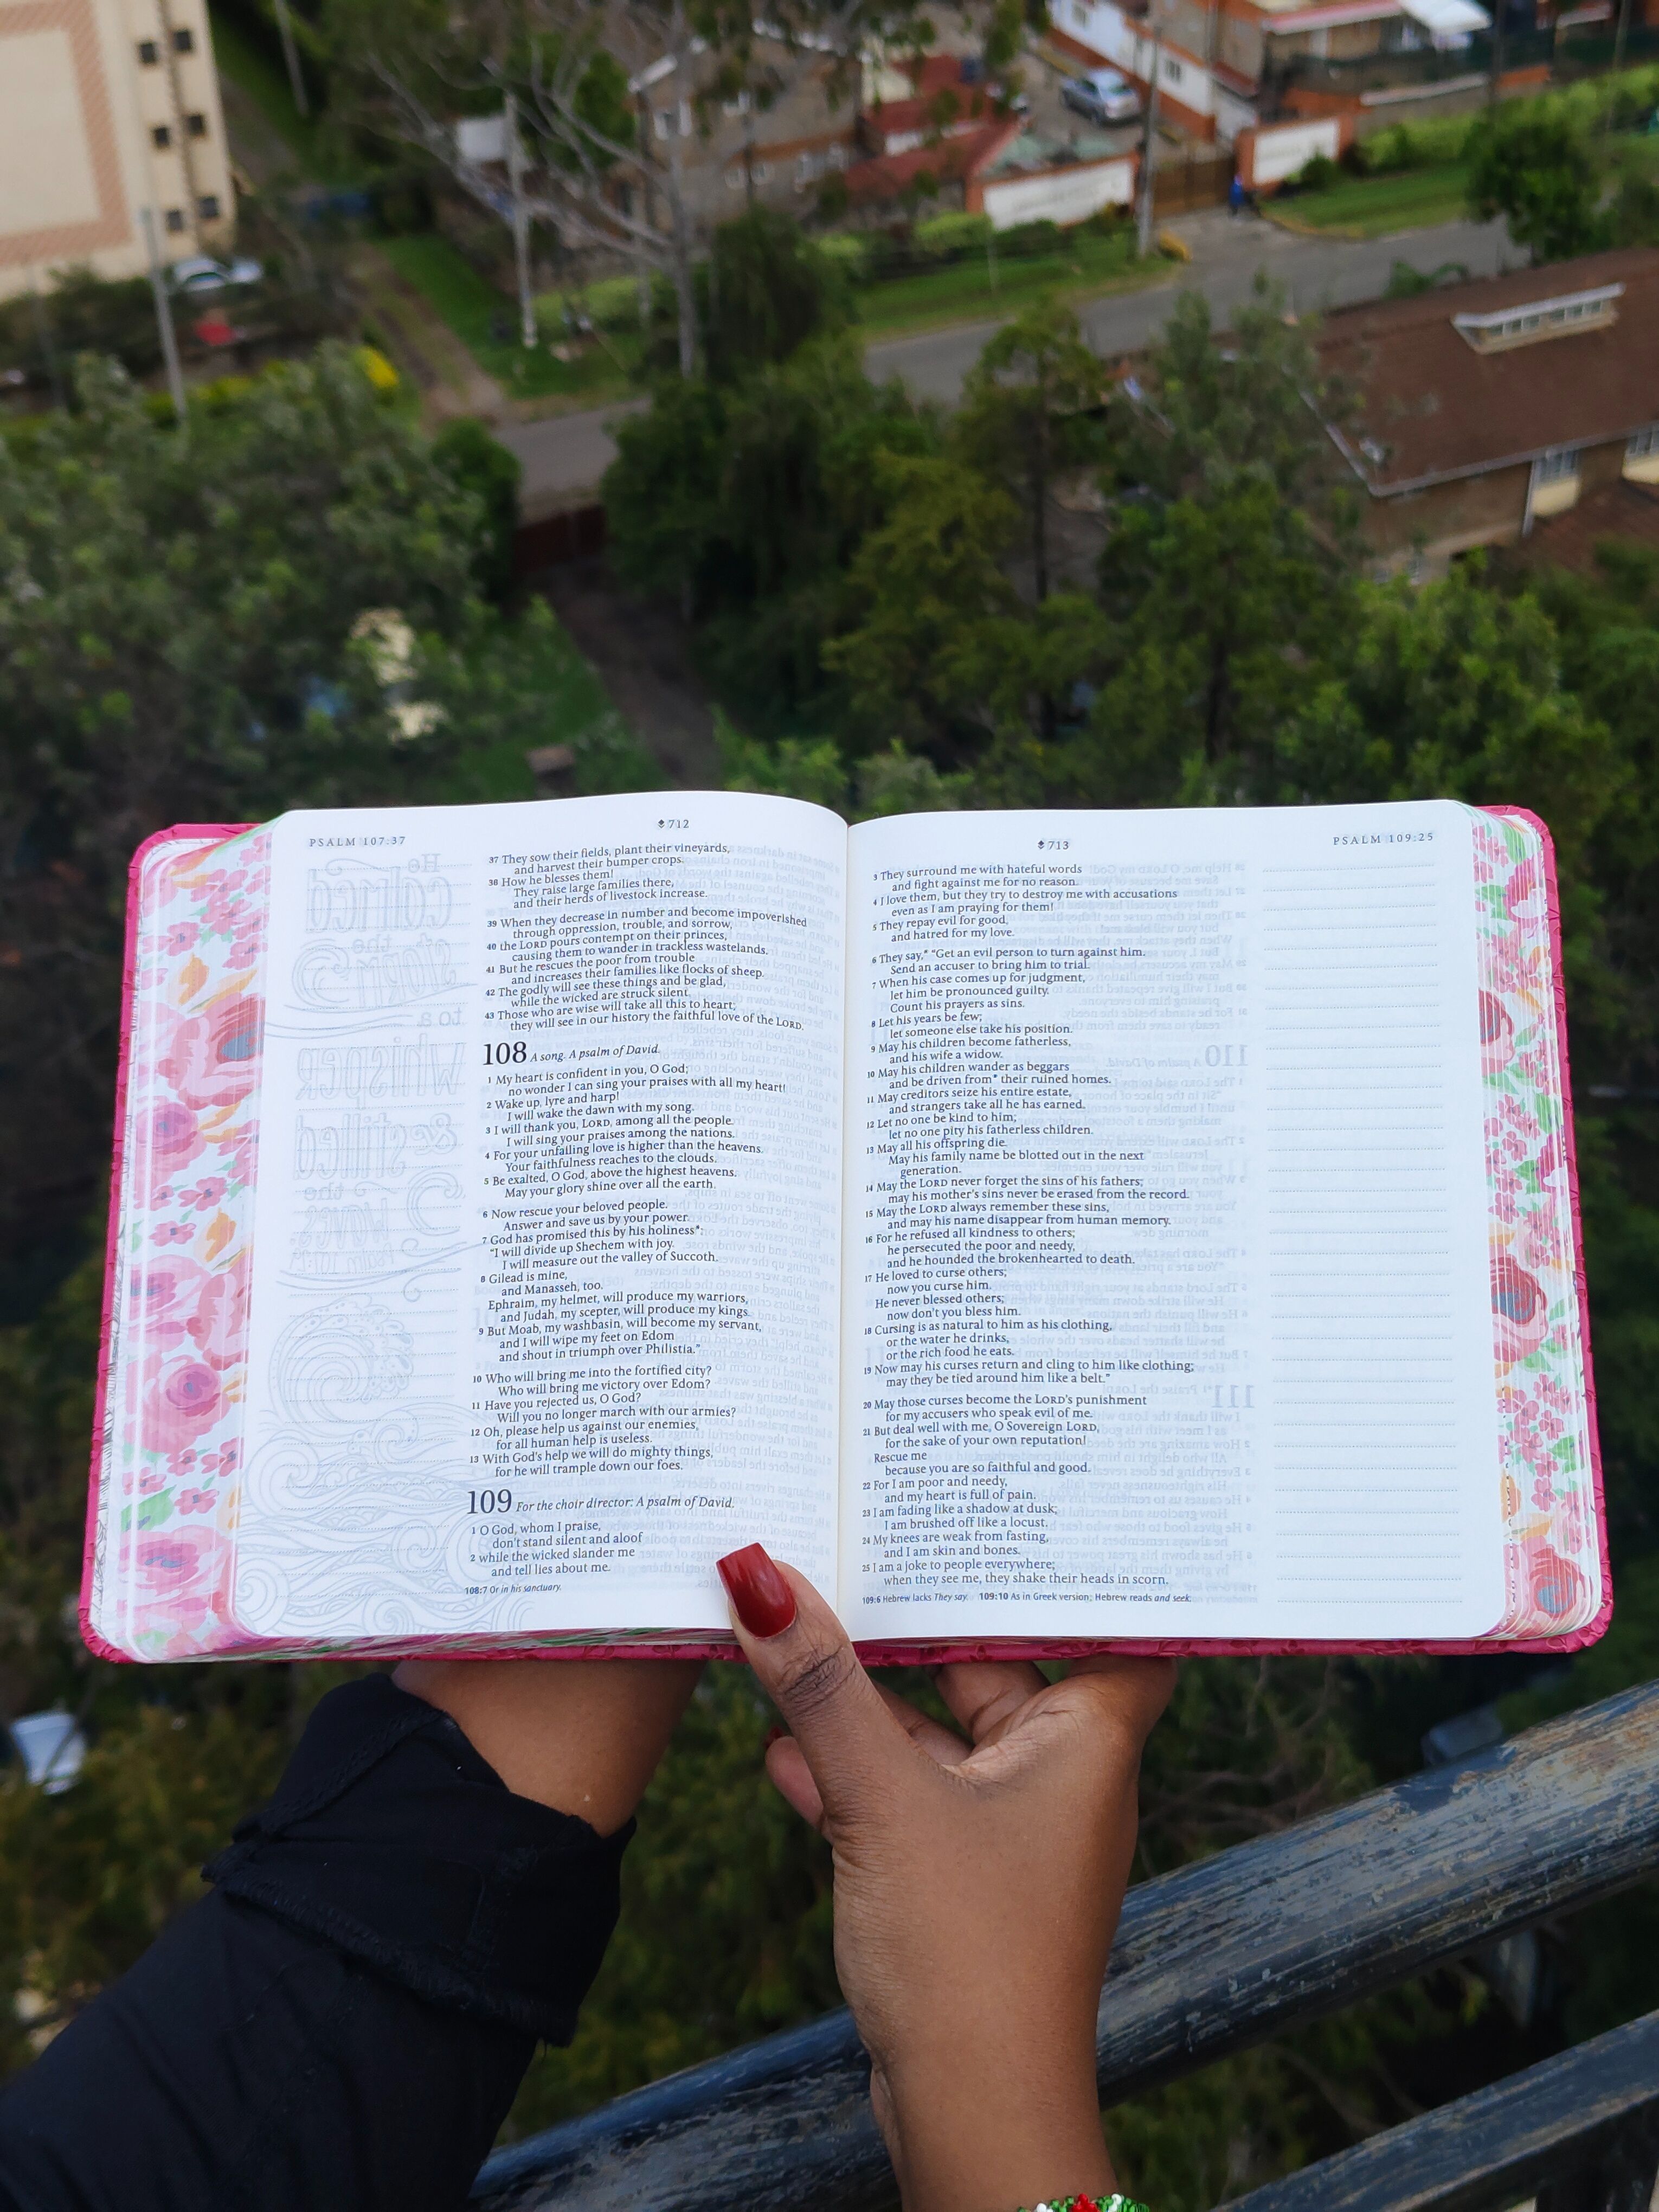 PSALM 107:37
712
37 They sow their fields, plant their vineyards,
and harvest their bumper crops.
38 How he blesses them!
They raise large families there,
and their herds of livestock increase.
39 When they decrease in number and become impoverished
through oppression, trouble, and sorrow,
40 the LORD pours contempt on their princes,
causing them to wander in trackless wastelands.
41 But he rescues the poor from trouble
and increases their families like flocks of sheep.
42 The godly will see these things and be glad,
while the wicked are struck silent.
43 Those who are wise will take all this to heart;
they will see in our history the faithful love of the LORD.
108 A song. A psalm of David.
1 My heart is confident in you, O God;
no wonder I can sing your praises with all my heart!
2 Wake up, lyre and harp!
I will wake the dawn with my song.
3 I will thank you, LORD, among all the people.
I will sing your praises among the nations.
4 For your unfailing love is higher than the heavens.
Your faithfulness reaches to the clouds.
5 Be exalted, O God, above the highest heavens.
May your glory shine over all the earth.
6 Now rescue your beloved people.
Answer and save us by your power.
7 God has promised this by his holiness*:
“I will divide up Shechem with joy.
I will measure out the valley of Succoth.
8 Gilead is mine,
and Manasseh, too.
Ephraim, my helmet, will produce my warriors,
and Judah, my scepter, will produce my kings.
9 But Moab, my washbasin, will become my servant,
and I will wipe my feet on Edom
and shout in triumph over Philistia.”
10 Who will bring me into the fortified city?
Who will bring me victory over Edom?
11 Have you rejected us, O God?
Will you no longer march with our armies?
12 Oh, please help us against our enemies,
for all human help is useless.
13 With God's help we will do mighty things,
for he will trample down our foes.
109 For the choir director: A psalm of David.
1 O God, whom I praise,
don't stand silent and aloof
2 while the wicked slander me
and tell lies about me.
108:7 Or in his sanctuary.
713
PSALM 109:25
3 They surround me with hateful words
and fight against me for no reason.
4 I love them, but they try to destroy me with accusations
even as I am praying for them!
5 They repay evil for good,
and hatred for my love.
6 They say,* “Get an evil person to turn against him.
Send an accuser to bring him to trial.
7 When his case comes up for judgment,
let him be pronounced guilty.
Count his prayers as sins.
8 Let his years be few;
let someone else take his position.
9 May his children become fatherless,
and his wife a widow.
10 May his children wander as beggars
and be driven from* their ruined homes.
11 May creditors seize his entire estate,
and strangers take all he has earned.
12 Let no one be kind to him;
let no one pity his fatherless children.
13 May all his offspring die.
May his family name be blotted out in the next
generation.
14 May the LORD never forget the sins of his fathers;
may his mother's sins never be erased from the record.
15 May the LORD always remember these sins,
and may his name disappear from human memory.
16 For he refused all kindness to others;
he persecuted the poor and needy,
and he hounded the brokenhearted to death.
17 He loved to curse others;
now you curse him.
He never blessed others;
now don't you bless him.
18 Cursing is as natural to him as his clothing,
or the water he drinks,
or the rich food he eats.
19 Now may his curses return and cling to him like clothing;
may they be tied around him like a belt.”
20 May those curses become the LORD's punishment
for my accusers who speak evil of me.
21 But deal well with me, O Sovereign LORD,
for the sake of your own reputation!
Rescue me
because you are so faithful and good.
22 For I am poor and needy,
and my heart is full of pain.
23 I am fading like a shadow at dusk;
I am brushed off like a locust.
24 My knees are weak from fasting,
and I am skin and bones.
25 I am a joke to people everywhere;
when they see me, they shake their heads in scorn.
109:6 Hebrew lacks They say. 109:10 As in Greek version; Hebrew reads and seek.